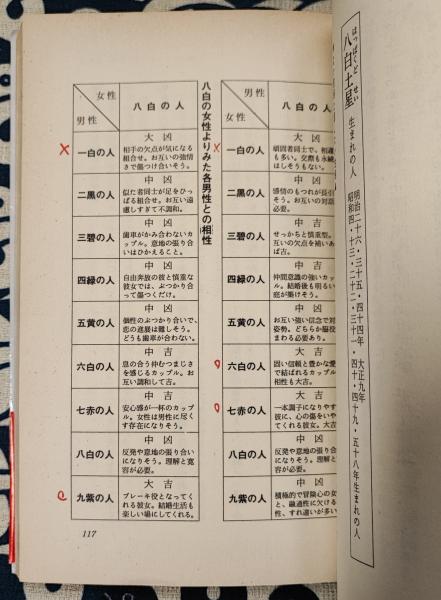 はっぱくど せい
八白土星 生まれの人
明治二十六・三十五・四十四年 大正九年
昭和四・十三・二十二・三十一・四十・四十九・五十八年生まれの人
男性
女性
八白の人
一白の人
大凶
頑固者同士で、相違
も多い。交際も永続
はしそうもない。
二黒の人
中凶
感情のもつれが長引
そう。お互いの対話
必要。
三碧の人
中吉
せっかちと慎重型。
互いの欠点を補いあ
ば吉。
四緑の人
中吉
仲間意識の強いカッ
ル。結婚後も明るい
庭が築けそう。
五黄の人
中凶
お互い強い信念で対
姿勢。どちらか脇役
まわる必要あり。
六白の人
大吉
固い信頼と豊かな愛
で結ばれるカップル
相性も大吉。
七赤の人
大吉
一本調子になりやす
彼に、心の傷をいや
てくれる彼女。大吉
八白の人
中凶
反発や意地の張り合
になりそう。理解と
容が必要。
九紫の人
中凶
積極的で冒険心の女
と、融通性に欠ける
性、すれ違いが多
八白の女性よりみた各男性との相性
女性
男性
八白の人
一白の人
大凶
相手の欠点が気になる
組合せ。お互いの強情
さで傷つけ合いそう。
二黒の人
中凶
似た者同士が足をひっ
ぱる組合せ。お互い遠
慮しすぎて不調和。
三碧の人
中凶
歯車がかみ合わないカ
ップル。意地の張り合
いはひかえること。
四緑の人
中凶
自由奔放の彼と慎重な
彼女では、ぶつかり合
って傷つくだけ。
五黄の人
中凶
個性のぶつかり合いで、
恋の進展は難しそう。
どうも歯車が合わない。
六白の人
中吉
息の合う仲むつまじさ
を感じるカップル。お
互い調和して大吉。
七赤の人
中吉
安心感が一杯のカップ
ル。女性は男性に尽く
す存在になりそう。
八白の人
中凶
反発や意地の張り合い
になりそう。理解と寛
容が必要。
九紫の人
大吉
ブレーキ役となってく
れる彼女。結婚生活も
楽しい場にしてくれる。
117